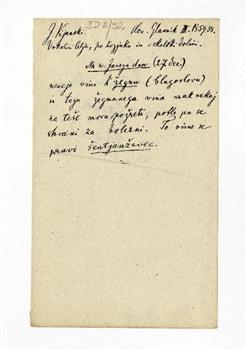 J. Kjanski. 326/22 Slov. Glasnik III. 1859, 78.
V okolici Celja, po Ložjaku in sokolski dolini.
Na sv. Janeza dan (27 dec)
nesejo vino k žegnu (blagoslovu)
in tega žegnanega vina vsak nekaj
na teše mora požreti, potlej pa se
shrani za bolezni. To vino se
pravi šentjanževec.